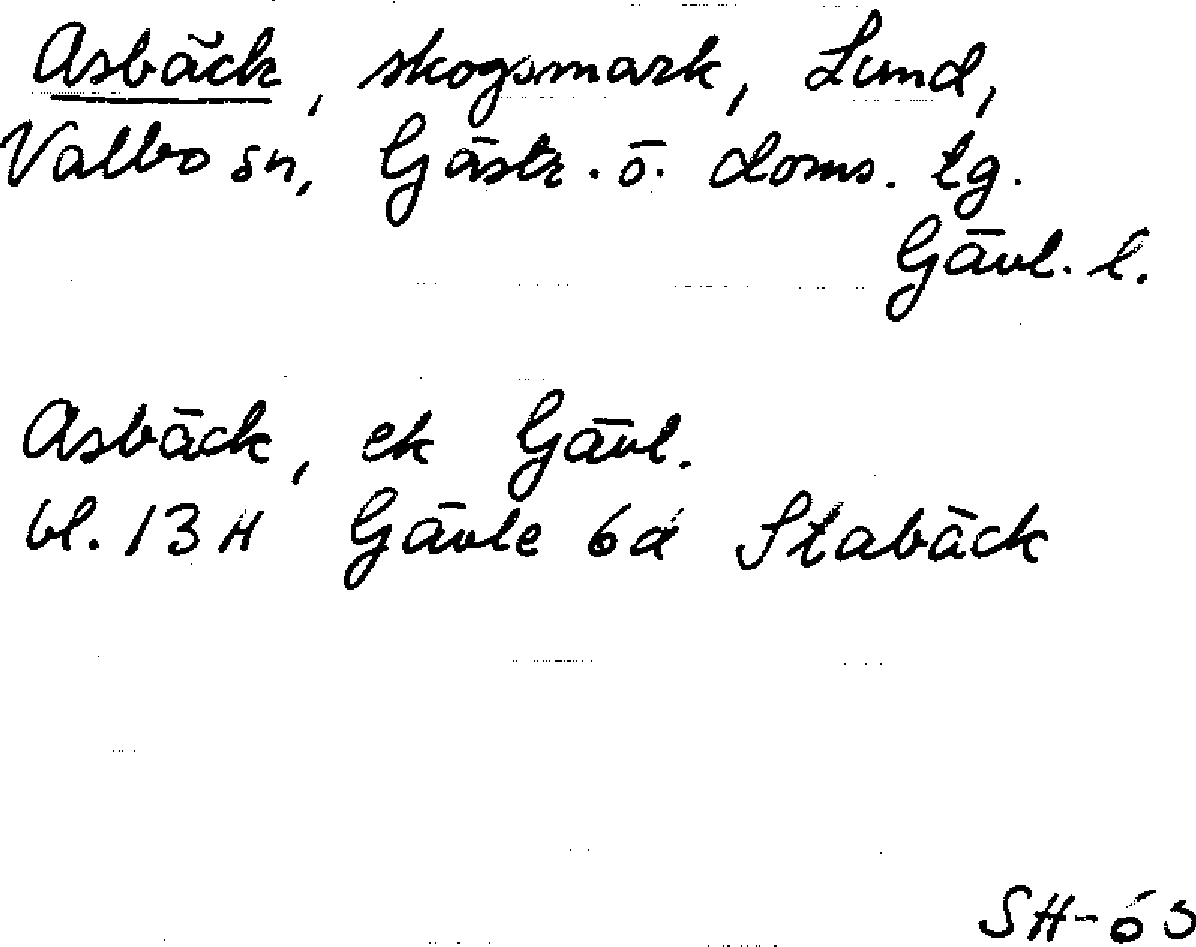 Asbäck, skogsmark, Lund,
Valbo sn, Gästr. ö. doms. tg.
Gävl. l.
Asbäck, ek Gävl.
bl. 13H Gävle 6d Stabäck
SH-63